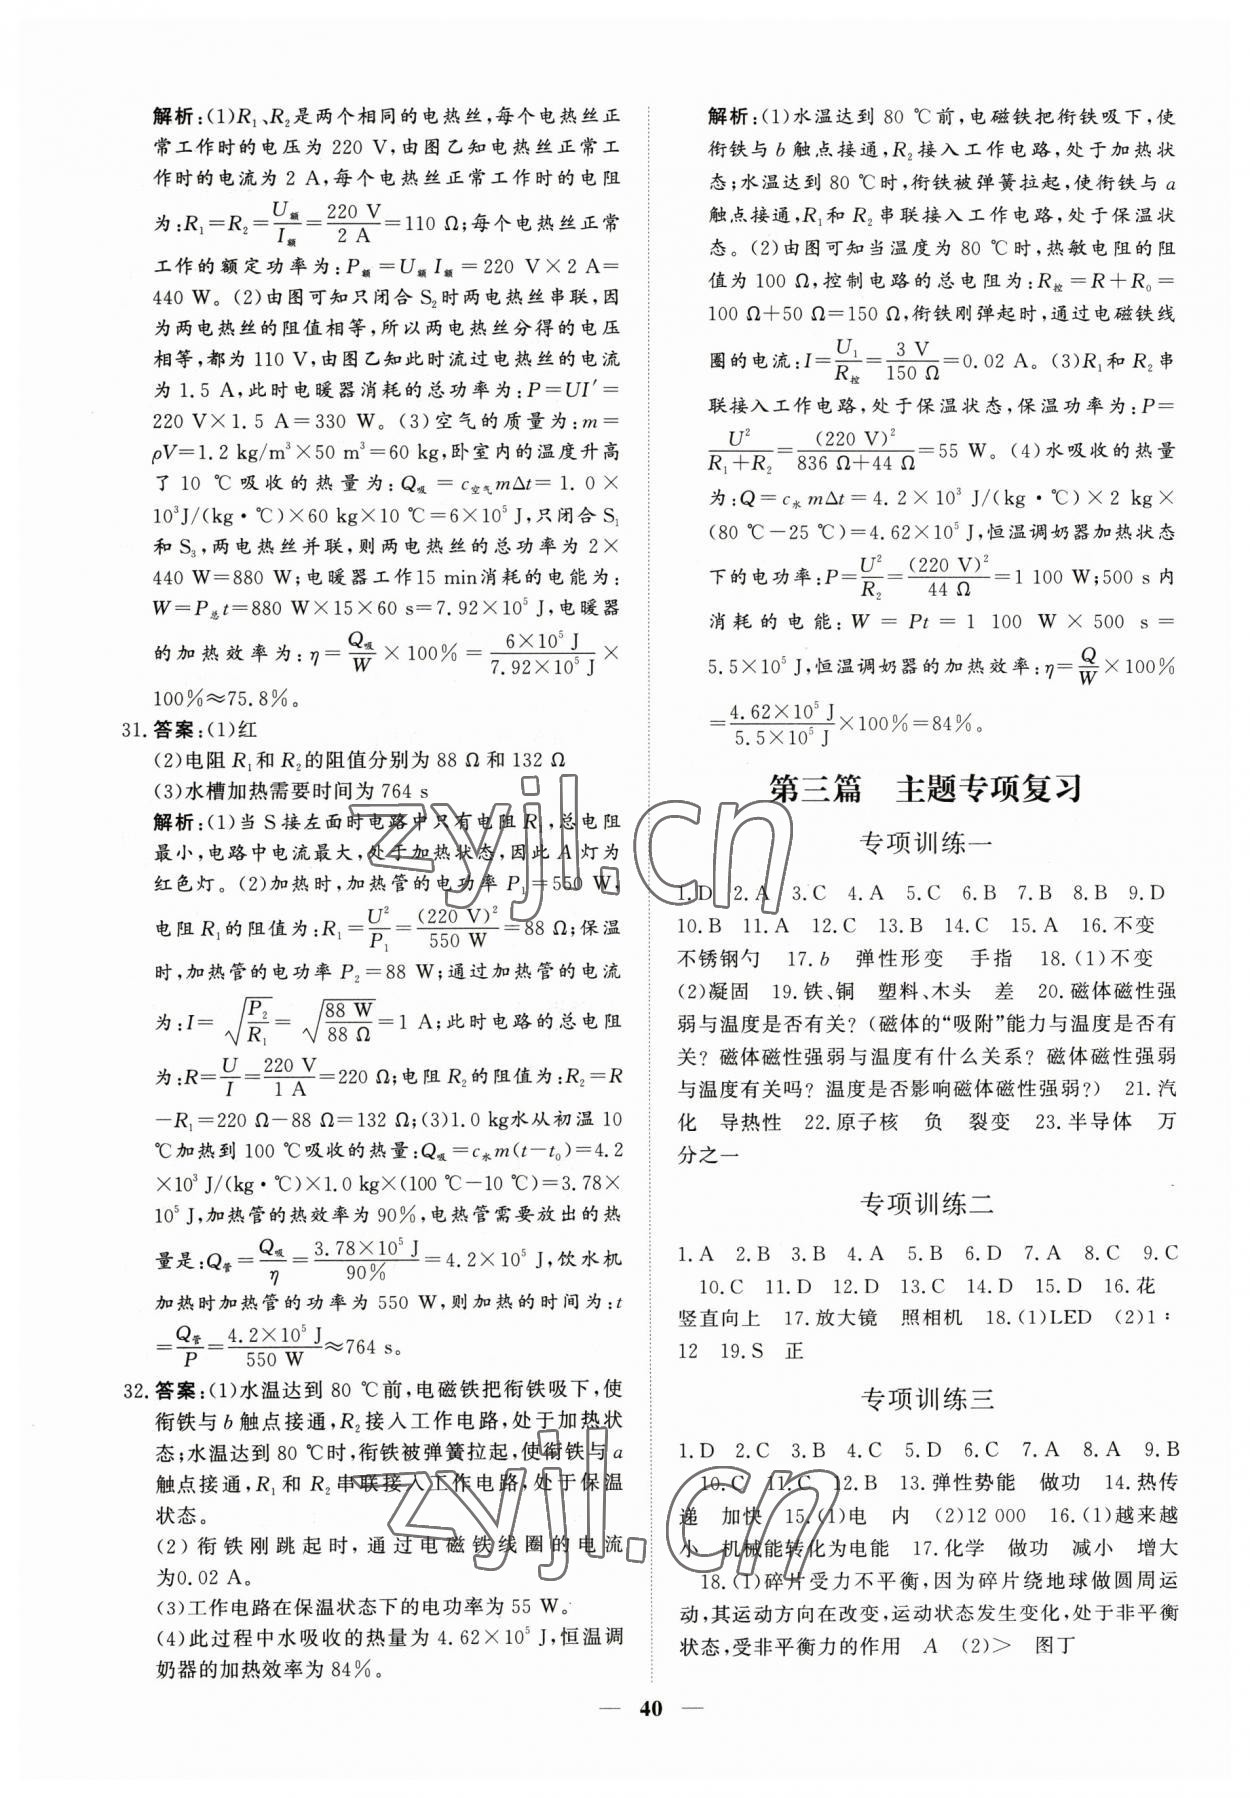 解析:(1)R₁、R₂是两个相同的电热丝,每个电热丝正
常工作时的电压为 220 V,由图乙知电热丝正常工
作时的电流为 2 A,每个电热丝正常工作时的电阻
为:R₁=R₂=U额/I额=220 V/2 A=110 Ω;每个电热丝正常
工作的额定功率为:P额=U额 I额=220 V×2 A=
440 W。(2)由图可知只闭合 S₂时两电热丝串联,因
为两电热丝的阻值相等,所以两电热丝分得的电压
相等,都为 110 V,由图乙知此时流过电热丝的电流
为 1.5 A,此时电暖器消耗的总功率为:P=UI′=
220 V×1.5 A=330 W。(3)空气的质量为:m=
ρV=1.2 kg/m³×50 m³=60 kg,卧室内的温度升高
了 10 ℃吸收的热量为:Q吸=c空气mΔt=1.0×
10³J/(kg·℃)×60 kg×10 ℃=6×10⁵ J,只闭合 S₁
和 S₃,两电热丝并联,则两电热丝的总功率为 2×
440 W=880 W;电暖器工作15 min消耗的电能为:
W=P总t=880 W×15×60 s=7.92×10⁵ J,电暖器
的加热效率为:η=Q吸/W×100%=6×10⁵ J/7.92×10⁵ J×
100%≈75.8%。
31.答案:(1)红
(2)电阻 R₁和 R₂的阻值分别为 88 Ω 和 132 Ω
(3)水槽加热需要时间为 764 s
解析:(1)当 S接左面时电路中只有电阻 R₁,总电阻
最小,电路中电流最大,处于加热状态,因此 A 灯为
红色灯。(2)加热时,加热管的电功率 P₁=550 W,
电阻 R₁的阻值为:R₁=U²/P₁=(220 V)²/550 W=88 Ω;保温
时,加热管的电功率 P₂=88 W;通过加热管的电流
为:I=√(P₂/R₁)=√(88 W/88 Ω)=1 A;此时电路的总电阻
为:R=U/I=220 V/1 A=220 Ω;电阻 R₂的阻值为:R₂=R
−R₁=220 Ω−88 Ω=132 Ω;(3)1.0 kg水从初温 10
℃加热到 100 ℃吸收的热量:Q吸=c水m(t−t₀)=4.2
×10³ J/(kg·℃)×1.0 kg×(100 ℃−10 ℃)=3.78×
10⁵ J,加热管的热效率为 90%,电热管需要放出的热
量是:Q管=Q吸/η=3.78×10⁵ J/90%=4.2×10⁵ J,饮水机
加热时加热管的功率为 550 W,则加热的时间为:t
=Q管/P=4.2×10⁵ J/550 W≈764 s。
32.答案:(1)水温达到 80 ℃前,电磁铁把衔铁吸下,使
衔铁与 b 触点接通,R₂接入工作电路,处于加热状
态;水温达到 80 ℃时,衔铁被弹簧拉起,使衔铁与 a
触点接通,R₁和 R₂串联接入工作电路,处于保温
状态。
(2)衔铁刚跳起时,通过电磁铁线圈的电流
为0.02 A。
(3)工作电路在保温状态下的电功率为 55 W。
(4)此过程中水吸收的热量为 4.62×10⁵ J,恒温调
奶器的加热效率为 84%。
解析:(1)水温达到 80 ℃前,电磁铁把衔铁吸下,使
衔铁与 b 触点接通,R₂接入工作电路,处于加热状
态;水温达到 80 ℃时,衔铁被弹簧拉起,使衔铁与 a
触点接通,R₁和 R₂串联接入工作电路,处于保温状
态。(2)由图可知当温度为 80 ℃时,热敏电阻的阻
值为 100 Ω,控制电路的总电阻为:R控=R+R₀=
100 Ω+50 Ω=150 Ω,衔铁刚弹起时,通过电磁铁线
圈的电流:I=U₁/R控=3 V/150 Ω=0.02 A。(3)R₁和 R₂串
联接入工作电路,处于保温状态,保温功率为:P=
U²/(R₁+R₂)=(220 V)²/(836 Ω+44 Ω)=55 W。(4)水吸收的热量
为:Q=c水 mΔt=4.2×10³ J/(kg·℃)×2 kg×
(80 ℃−25 ℃)=4.62×10⁵ J,恒温调奶器加热状态
下的电功率:P=U²/R₂=(220 V)²/44 Ω=1 100 W;500 s内
消耗的电能:W=Pt=1 100 W×500 s=
5.5×10⁵ J,恒温调奶器的加热效率:η=Q/W×100%
=4.62×10⁵ J/5.5×10⁵ J×100%=84%。
第三篇 主题专项复习
专项训练一
1.D 2.A 3.C 4.A 5.C 6.B 7.B 8.B 9.D
10.B 11.A 12.C 13.B 14.C 15.A 16.不变
不锈钢勺 17.b 弹性形变 手指 18.(1)不变
(2)凝固 19.铁、铜 塑料、木头 差 20.磁体磁性强
弱与温度是否有关?(磁体的“吸附”能力与温度是否有
关?磁体磁性强弱与温度有什么关系?磁体磁性强弱
与温度有关吗?温度是否影响磁体磁性强弱?) 21.汽
化 导热性 22.原子核 负 裂变 23.半导体 万
分之一
专项训练二
1.A 2.B 3.B 4.A 5.B 6.D 7.A 8.C 9.C
10.C 11.D 12.D 13.C 14.D 15.D 16.花
竖直向上 17.放大镜 照相机 18.(1)LED (2)1:
12 19.S 正
专项训练三
1.D 2.C 3.C 4.C 5.D 6.C 7.A 8.A 9.B
10.C 11.C 12.B 13.弹性势能 做功 14.热传
递 加快 15.(1)电 内 (2)12 000 16.(1)越来越
小 机械能转化为电能 17.化学 做功 减小 增大
18.(1)碎片受力不平衡,因为碎片绕地球做圆周运
动,其运动方向在改变,运动状态发生变化,处于非平衡
状态,受非平衡力的作用 A (2)> 图丁
— 40 —
zyjl.cn
zyjl.cn